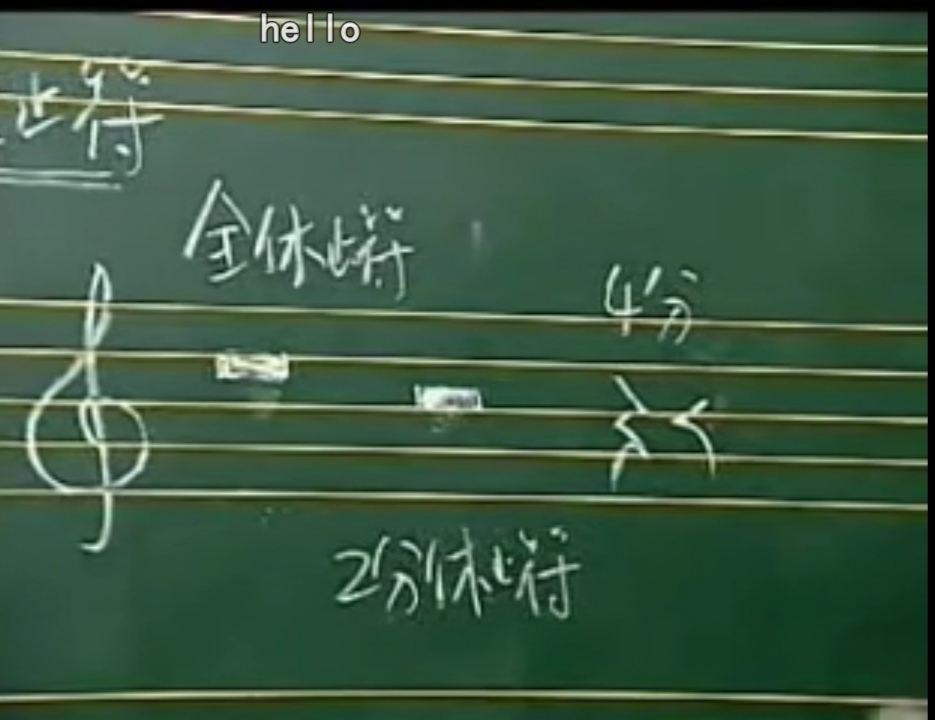 hello
止符
全休止符
4分
2分休止符